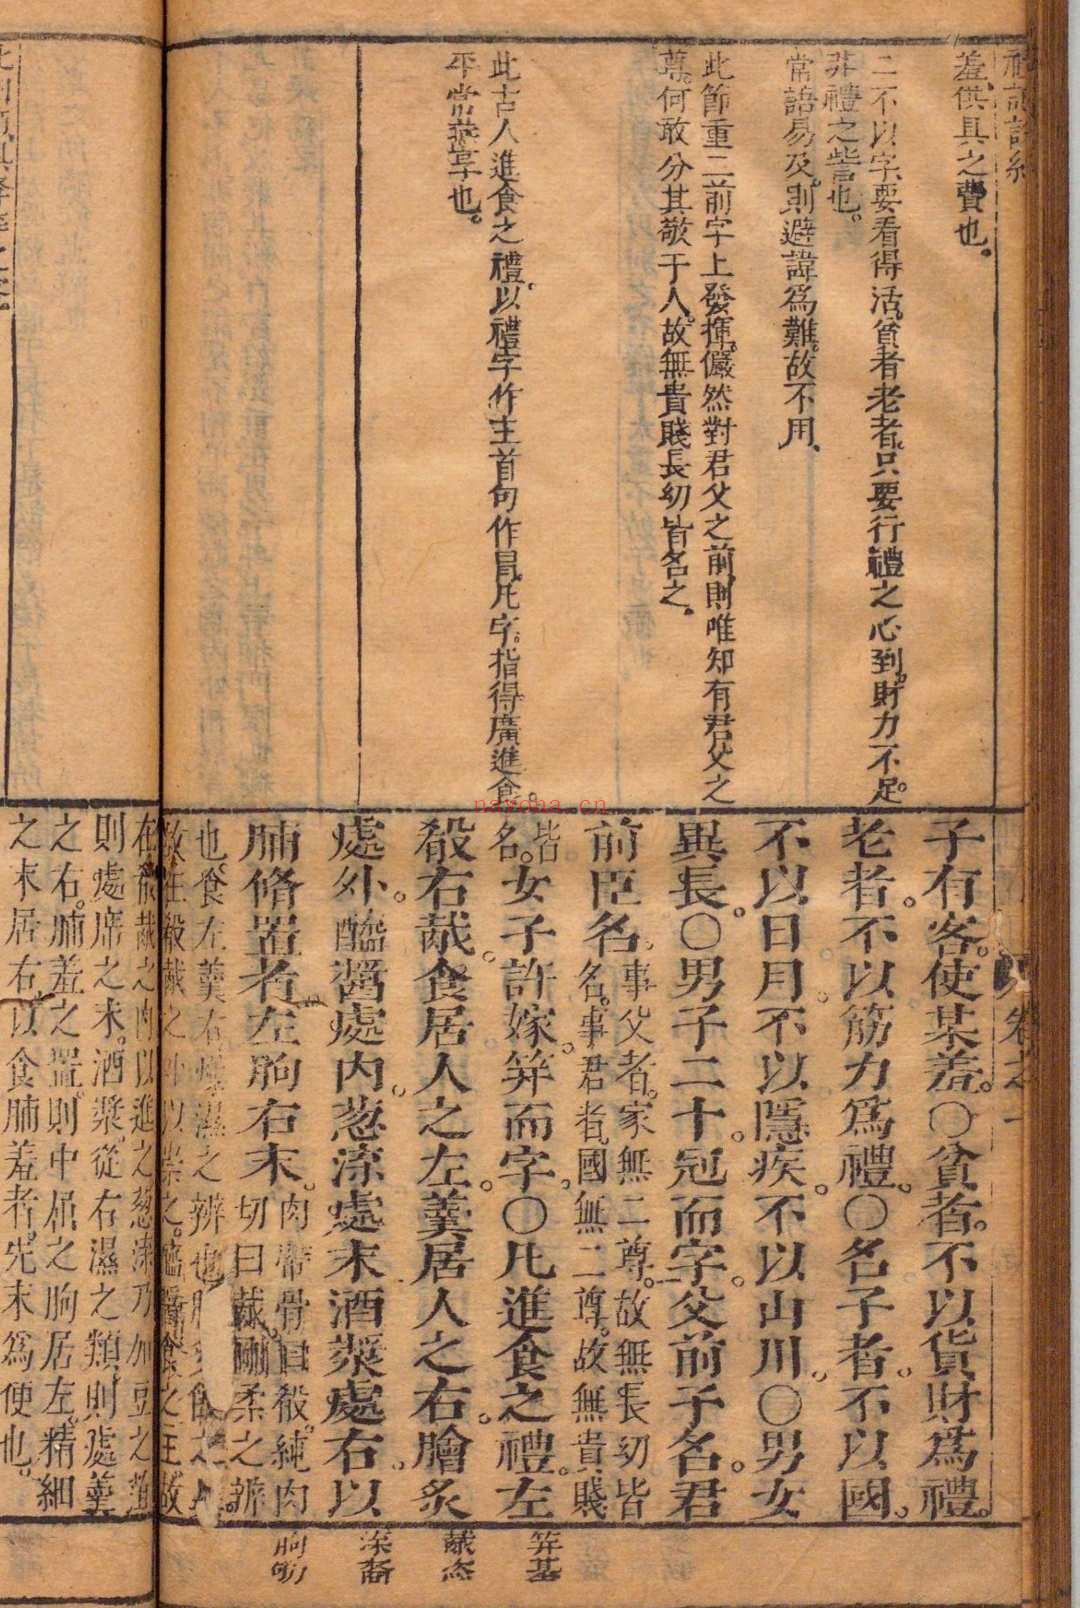 羞供具之費也。
二不以字要看得活貧者老者只要行禮之心到財力不足。
非禮之訾也。
常語易及則避諱爲難故不用、
此節重二前字上發揮儼然對君父之前則唯知有君父之
尊何敢分其敬于人故無貴賤長幼皆名之。
此古人進食之禮以禮字作主首句作冒凡字指得廣進食。
平常燕享也。
子有客使某羞。〇貧者。不以貨財爲禮。
老者。不以筋力爲禮。〇名子者。不以國。
不以日月。不以隱疾。不以山川。〇男女
異長。〇男子二十。冠而字。父前子名。君
前臣名。事父者。家無二尊。故無長幼皆
名。事君者。國無二尊。故無貴賤
皆
名。女子許嫁。笄而字。〇凡進食之禮。左
殽右胾。食居人之左。羹居人之右。膾炙
處外。醯醬處内。葱渫處末。酒漿處右。以
脯脩置者。左朐右末。肉帶骨曰殽。純肉
切曰胾。剛柔之辨
也。食左羹右。燥濕之辨也。
在殽胾之内以進之葱渫乃加豆之
則處席之末。酒漿從右濕之類。則處羹
之右。脯羞之置。則中屈之朐居左。精細
之末居右。以食脯羞者。先末爲便也。
笄基
胾恣
渫裔
朐劬
navoha.cn